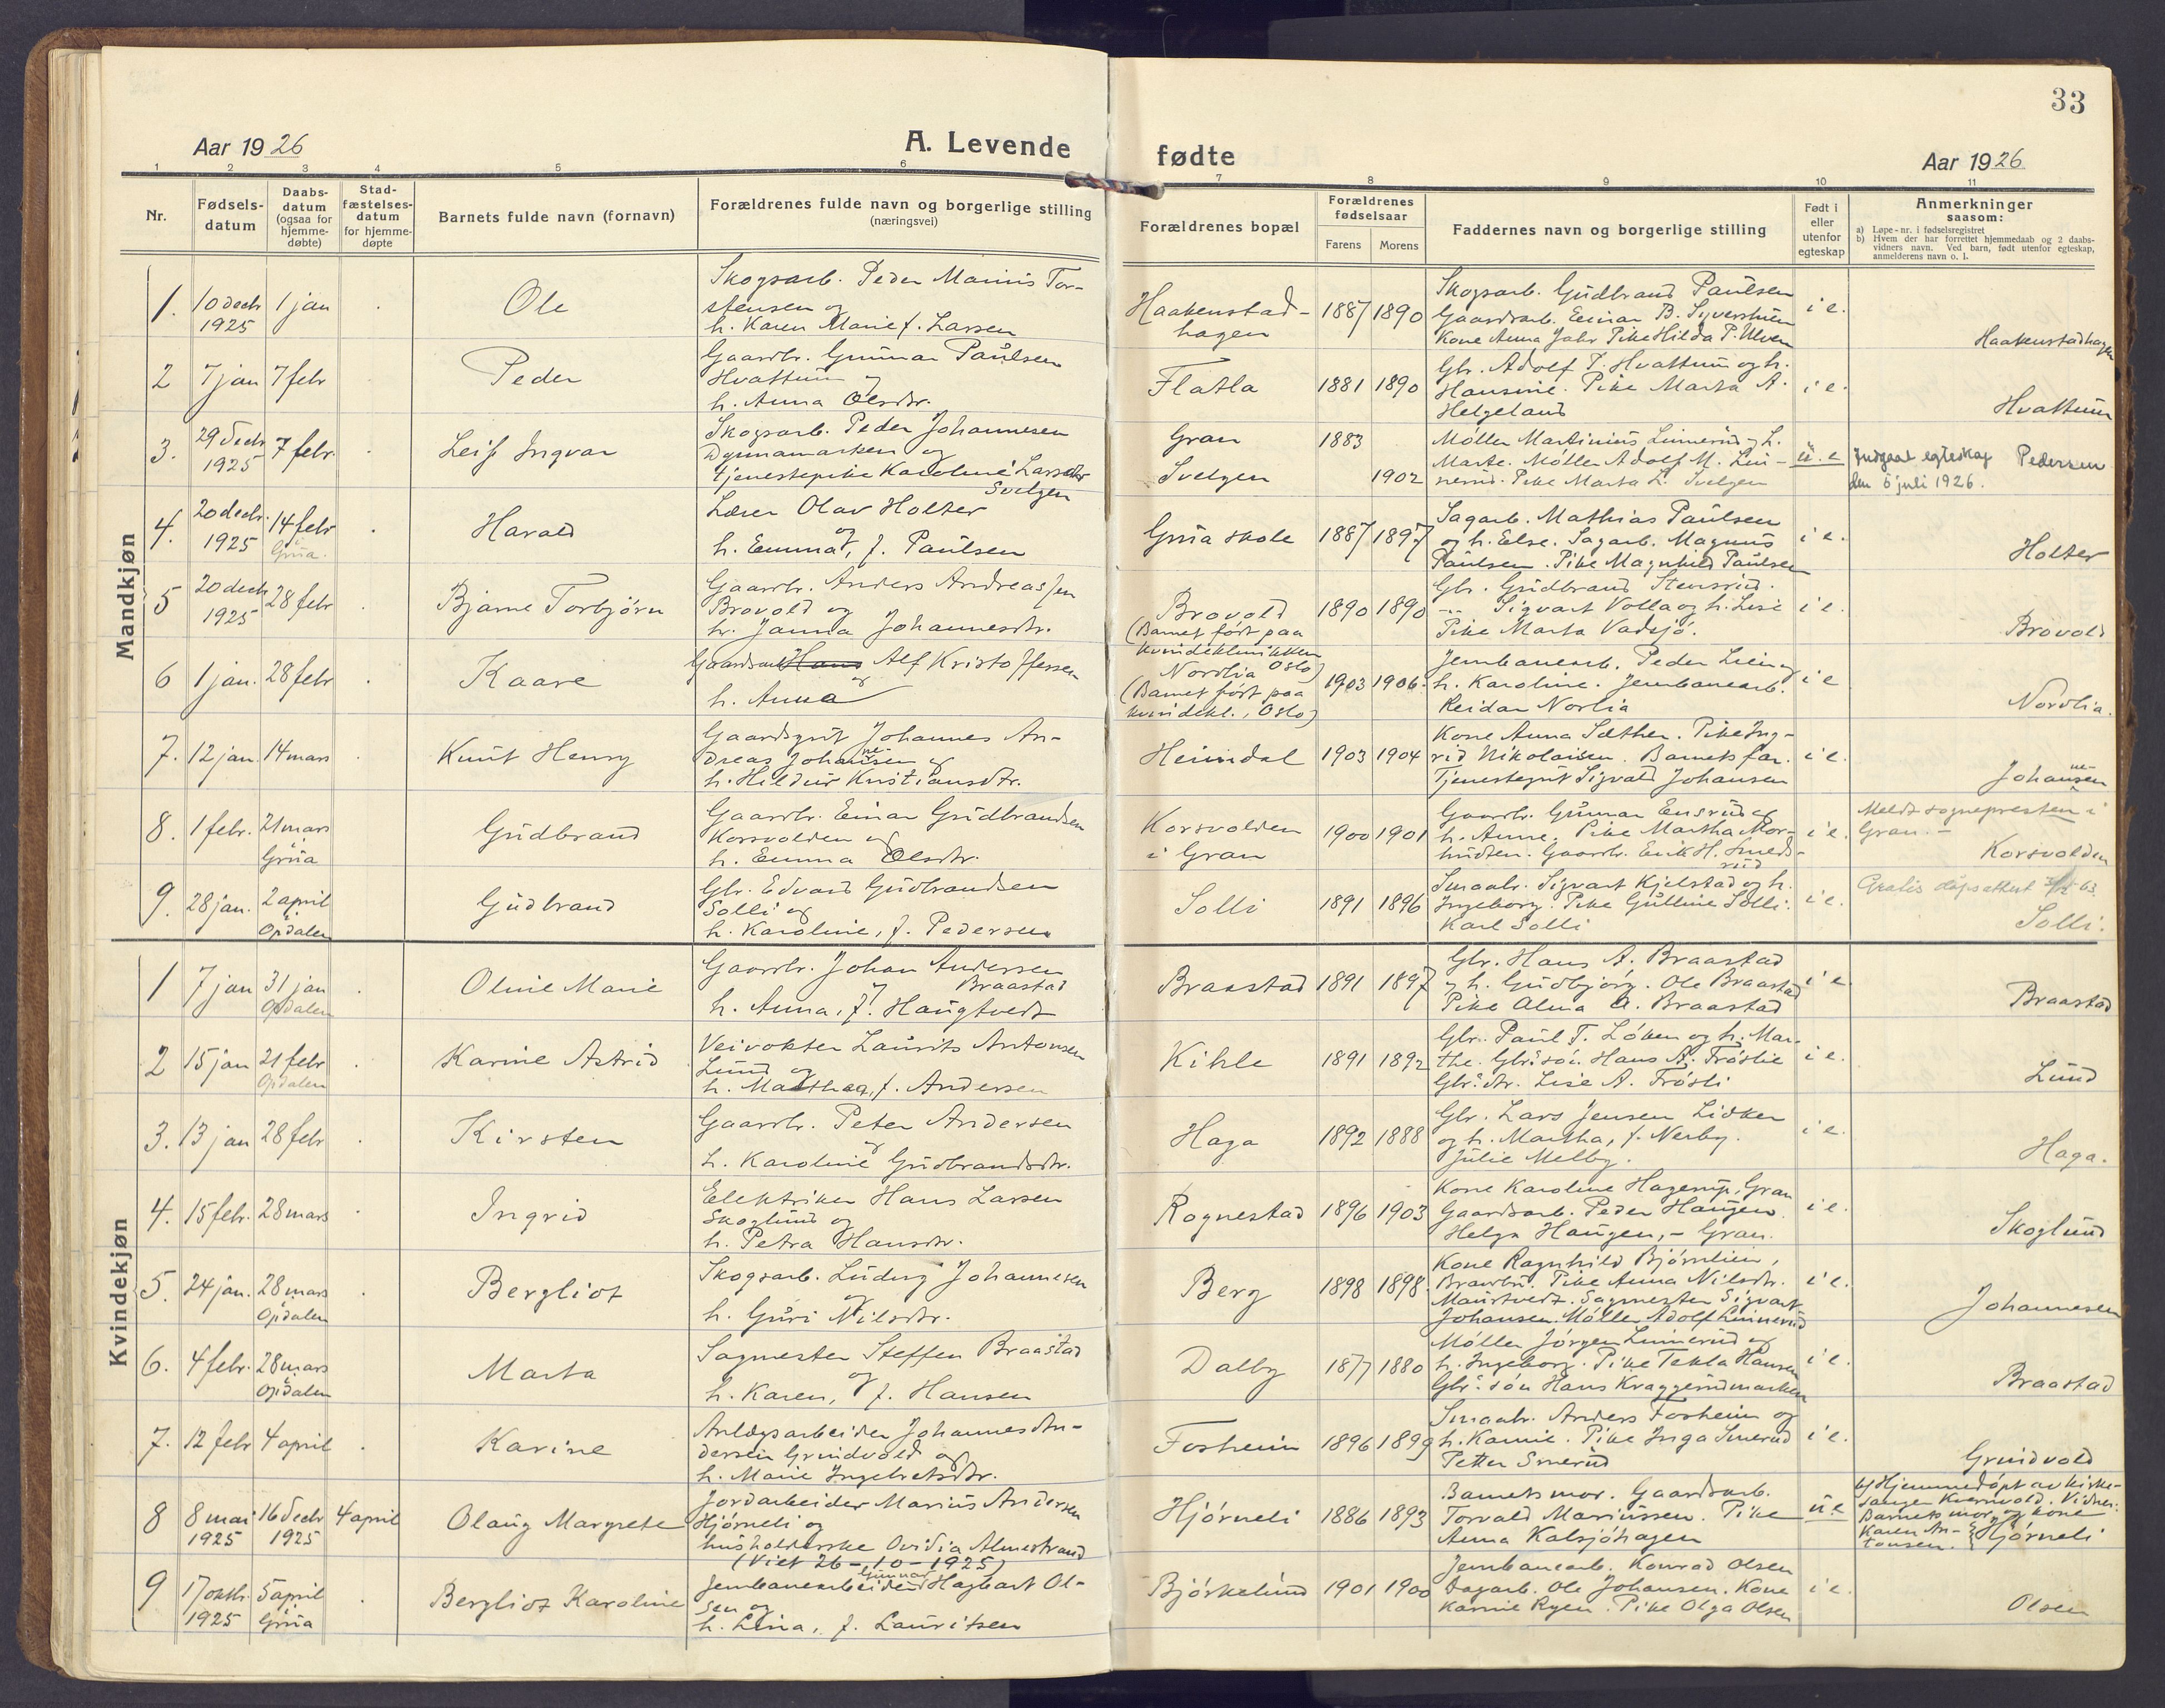 33
Aar 1926
A. Levende
fødte
Aar 1926
1 2 3 4 5 6 7 8 9 10 11
Nr.
Fødsels-
datum
Daabs-
datum
(ogsaa for
hjemme-
døbte)
Stad-
fæstelses-
datum
for hjemme-
døpte
Barnets fulde navn (fornavn)
Forældrenes fulde navn og borgerlige stilling
(næringsvei)
Forældrenes bopæl
Forældrenes
fødselsaar
Farens
Morens
Faddernes navn og borgerlige stilling
Født i
eller
utenfor
egteskap
Anmerkninger
saasom:
a) Løpe-nr. i fødselsregistret
b) Hvem der har forrettet hjemmedaab og 2 daabs-
vidners navn. Ved barn, født utenfor egteskap,
anmelderens navn o. l.
Mandkjøn
1. 10 decbr 1925
1 jan
Ole
Skogsarb. Peder Marius Tor-
stensen og
h. Karen Marie f. Larsen
Haakenstad-
hagen
1887 1890
Skogsarb. Gudbrand Paulsen
Gaardsarb. Einar B. Syversthuen
Kone Anna Pike Hilda P. Ulven
i e.
Haakenstadhagen
2 7 jan 7 febr
Peder
Gaardbr. Gunnar Paulsen
Hvattum og
h. Anna Olsdtr.
Flatla
1881 1890
Gbr. Adolf T. Hvattum og h.
Hansine. Pike Marta A.
Helgeland
i e.
Hvattum
3. 29 decbr 1925
7 febr.
Leif Ingvar
Skogsarb. Peder Johannesen
Dynnamarken og
tjenestepike Karoline Larsdtr
Svelgen
Gran
Svelgen
1883
1902
Møller Martinius Linnerud og h.
Marte. Møller Adolf M. Lin-
nerud. Pike Marta L. Svelgen
u. e
Indgaat egteskap
den 6 juli 1926.
Pedersen
4. 20 decbr. 1925
14 febr
i
Grua.
Harald
Lærer Olav Holter
og
h. Emma, f. Paulsen
Grua skole
1887 1897
Sagarb. Mathias Paulsen
og h. Else. Sagarb. Magnus
Paulsen. Pike Magnhild Paulsen
i e.
Holter
5 20 decbr 1925
28 febr
Bjarne Torbjørn
Gaardbr. Anders Andreassen
Brovold og
h. Janna Johannesdtr.
Brovold
(Barnet født paa
kvindeklinikken
Oslo)
1890 1890
Gbr. Gudbrand Stensrud.
-"- Sigvart Volla og h. Lise
Pike Marta Vadsjø.
i e.
Brovold
6 1 jan. 28 febr
Kaare
Gaardsarb. Hans Alf Kristoffersen
og
h. Anna
Nordlia
(Barnet født paa
kvindekl., Oslo)
1903 1906.
Jernbanearb. Peder Lien og
h. Karoline. Jernbanearb.
Reidar Norlia
i e
Nordlia.
7. 12 jan. 14 mars
Knut Henry
Gaardsgut Johannes An-
dreas Johannesen og
h. Hildur Kristiansdtr.
Heimdal
1903 1904
Kone Anna Sæther. Pike Ing-
rid Nikolaisen. Barnets far.
Tjenestegut Sigvald Johansen
i e.
Johannesen
8. 1 febr. 21 mars
i
Grua
Gudbrand
Gaardbr. Einar Gudbrandsen
Korsvolden og
h. Emma Olsdtr.
Korsvolden
i Gran
1900 1901
Gaardbr. Gunnar Ensrud og
h. Anne. Pike Martha Mor-
. Gaardbr. Erik H. Smeds-
rud
i e.
Meldt sognepresten i
Gran. –
Korsvolden
9. 28 jan. 2 april
i
Opdalen
Gudbrand
Gbr. Edvard Gudbrandsen
Solli og
h. Karoline, f. Pedersen
Solli
1891 1896
Smaabr. Sigvart Kjelstad og h.
Ingeborg. Pike Gulline Solli.
Karl Solli
i e.
Gratis dåpsattest 63
Solli.
Kvindekjøn
1 7 jan 31 jan
Opdalen
Oline Marie
Gaardbr. Johan Andersen
og Braastad
h. Anna, f. Haugtvedt
Braastad
1891 1897
Gbr. Hans A. Braastad
og h. Gudbjørg. Ole Braastad
Pike Alma A. Braastad
i e
Braastad
2 15 jan 21 febr
Opdalen
Karine Astrid
Veivokter Laurits Antonsen
Lund og
h. Marthea, f. Andersen
Kihle
1891 1892
Gbr. Paul T. Løken og h. Mar-
the. Gbr.søn Hans A. Frøslie
Gbr.dtr. Lise A. Frøsli
i e.
Lund
3. 13 jan 28 febr
Kirsten
Gaardbr. Peter Andersen
og
h. Karoline Gudbrandsdtr.
Haga
1892 1888
Gbr. Lars Jensen Lidken
og h. Martha, f. Nerby.
Julie Melby.
i e.
Haga.
4. 15 febr. 28 mars
Ingrid
Elektriker Hans Larsen
Skoglund og
h. Petra Hansdtr.
Rognestad
1896 1903
Kone Karoline Hagerup, Gran
Gaardsarb. Peder Haugen
Helga Haugen, – Gran.
i e.
Skoglund
5. 24 jan. 28 mars
i
Opdalen
Bergliot
Skogsarb. Ludvig Johannesen
og
h. Guri Nilsdtr.
Berg
1898 1898.
Kone Ragnhild Bjørnlien,
Brandbu. Pike Anna Nilsdtr.
Maurtvedt. Sagmester Sigvart
Johansen. Møller Adolf Linnerud
i e.
Johannesen
6. 4 febr. 28 mars
i
Opdalen
Marta
Sagmester Steffen Braastad
og
h. Karen, f. Hansen
Dalby
1877 1880
Møller Jørgen Linnerud og
h. Ingeborg. Pike Tekla Hansen
Gbr.søn Hans Kraggerudmarken
i e.
Braastad
7. 12 febr 4 april
Karine
Anlægsarbeider Johannes An-
dersen Grindvold og
h. Marie Ingebretsdtr.
Fosheim
1896 1899
Smaabr. Anders Fosheim og
h. Karine. Pike Inga Smerud
Petter Smerud
i e.
Grindvold
8 8 mai 1925
16 decbr 1925
4 april
Olaug Margrete
Jordarbeider Marius Andersen
Hjørneli og
husholderske Ovidia Almestrand
(Viet 26-10-1925)
Hjørneli
1886 1893
Barnets mor. Gaardsarb.
Torvald Mariussen. Pike
Anna Kalsjøhagen
u. e
b) Hjemmedøpt av kirke-
sanger Kvernvold. Vidner:
Barnets mor og kone
Karen An-
tonsen.
Hjørneli
9 17 oktbr. 1925
5 april
i
Grua
Bergliot Karoline
Gunnar
Jernbanearbeider Hagbart Ol-
sen og
h. Lina, f. Lauritsen
Bjørkelund
1901 1900
Jernbanearb. Konrad Olsen
Dagarb. Ole Johansen. Kone
Karine Ryen. Pike Olga Olsen
i e.
Olsen